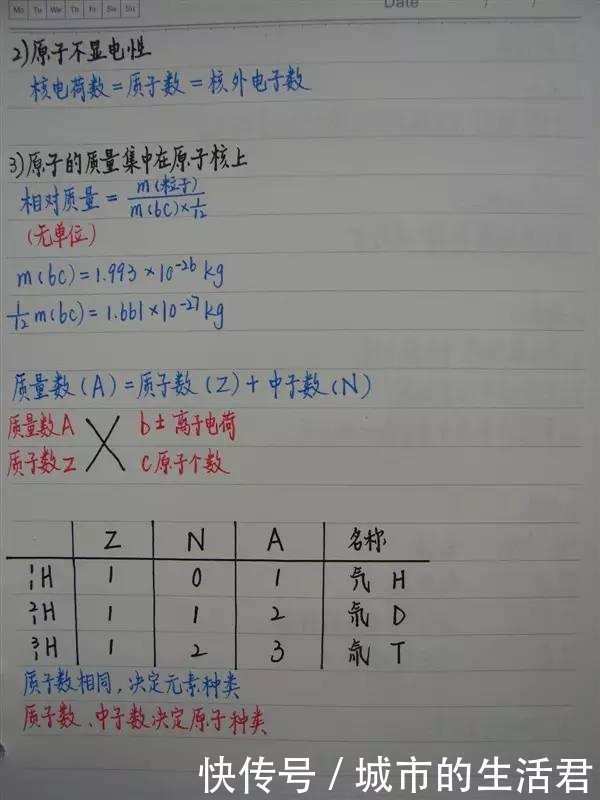 Mo Tu We Th Fr Sa Su
Date / /
2)原子不显电性
核电荷数=质子数=核外电子数
3)原子的质量集中在原子核上
相对质量= m(粒子) / m(6C)×1/12
(无单位)
m(6C)=1.993×10⁻²⁶kg
1/12 m(6C)=1.661×10⁻²⁷kg
质量数(A)=质子数(Z)+中子数(N)
质量数A b±离子电荷
X
质子数Z C原子个数
Z N A 名称
¹₁H 1 0 1 氕 H
²₁H 1 1 2 氘 D
³₁H 1 2 3 氚 T
质子数相同,决定元素种类
质子数、中子数决定原子种类
快传号/城市的生活君